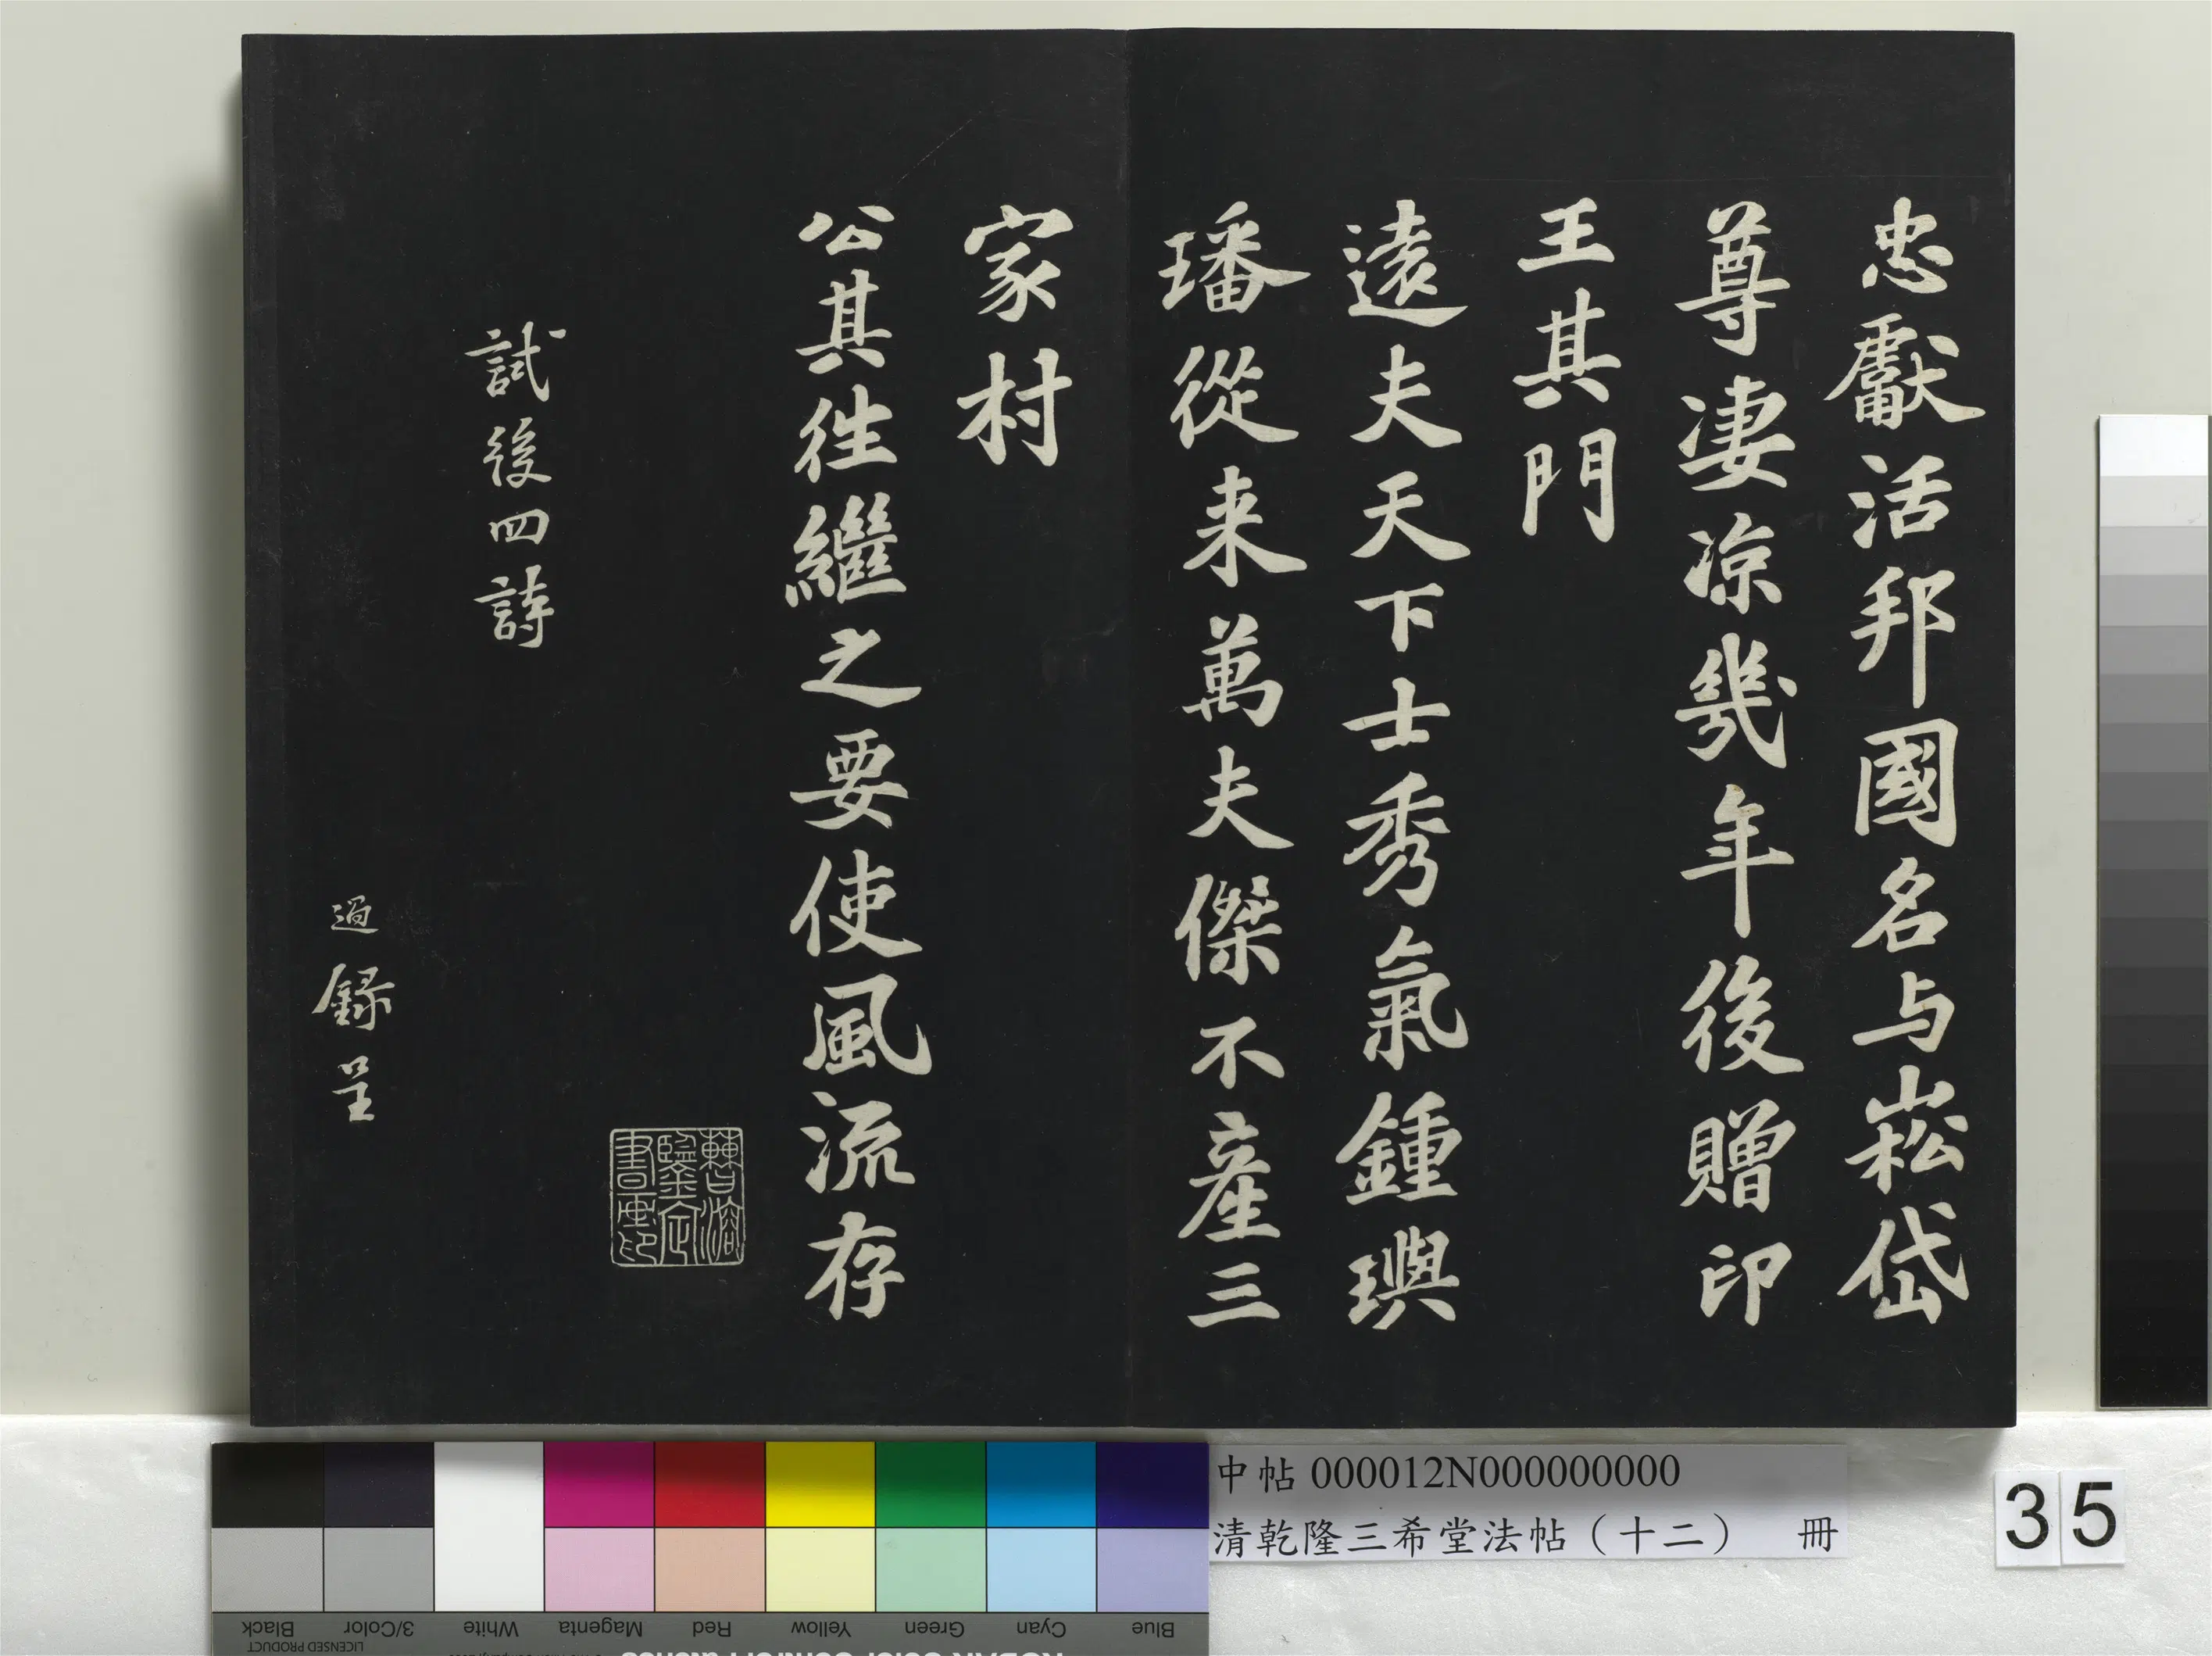 忠獻活邦國名与崧岱
尊凄凉幾年後贈印
王其門
遠夫天下士秀氣鍾璵
璠從来萬夫傑不產三
家村
公其徃繼之要使風流存
曹溶鑒定書畫印
試後四詩
過録呈
中帖 000012N000000000
清乾隆三希堂法帖（十二） 冊
35
Blue Cyan Green Yellow Red Magenta White 3/Color Black
LICENSED PRODUCT